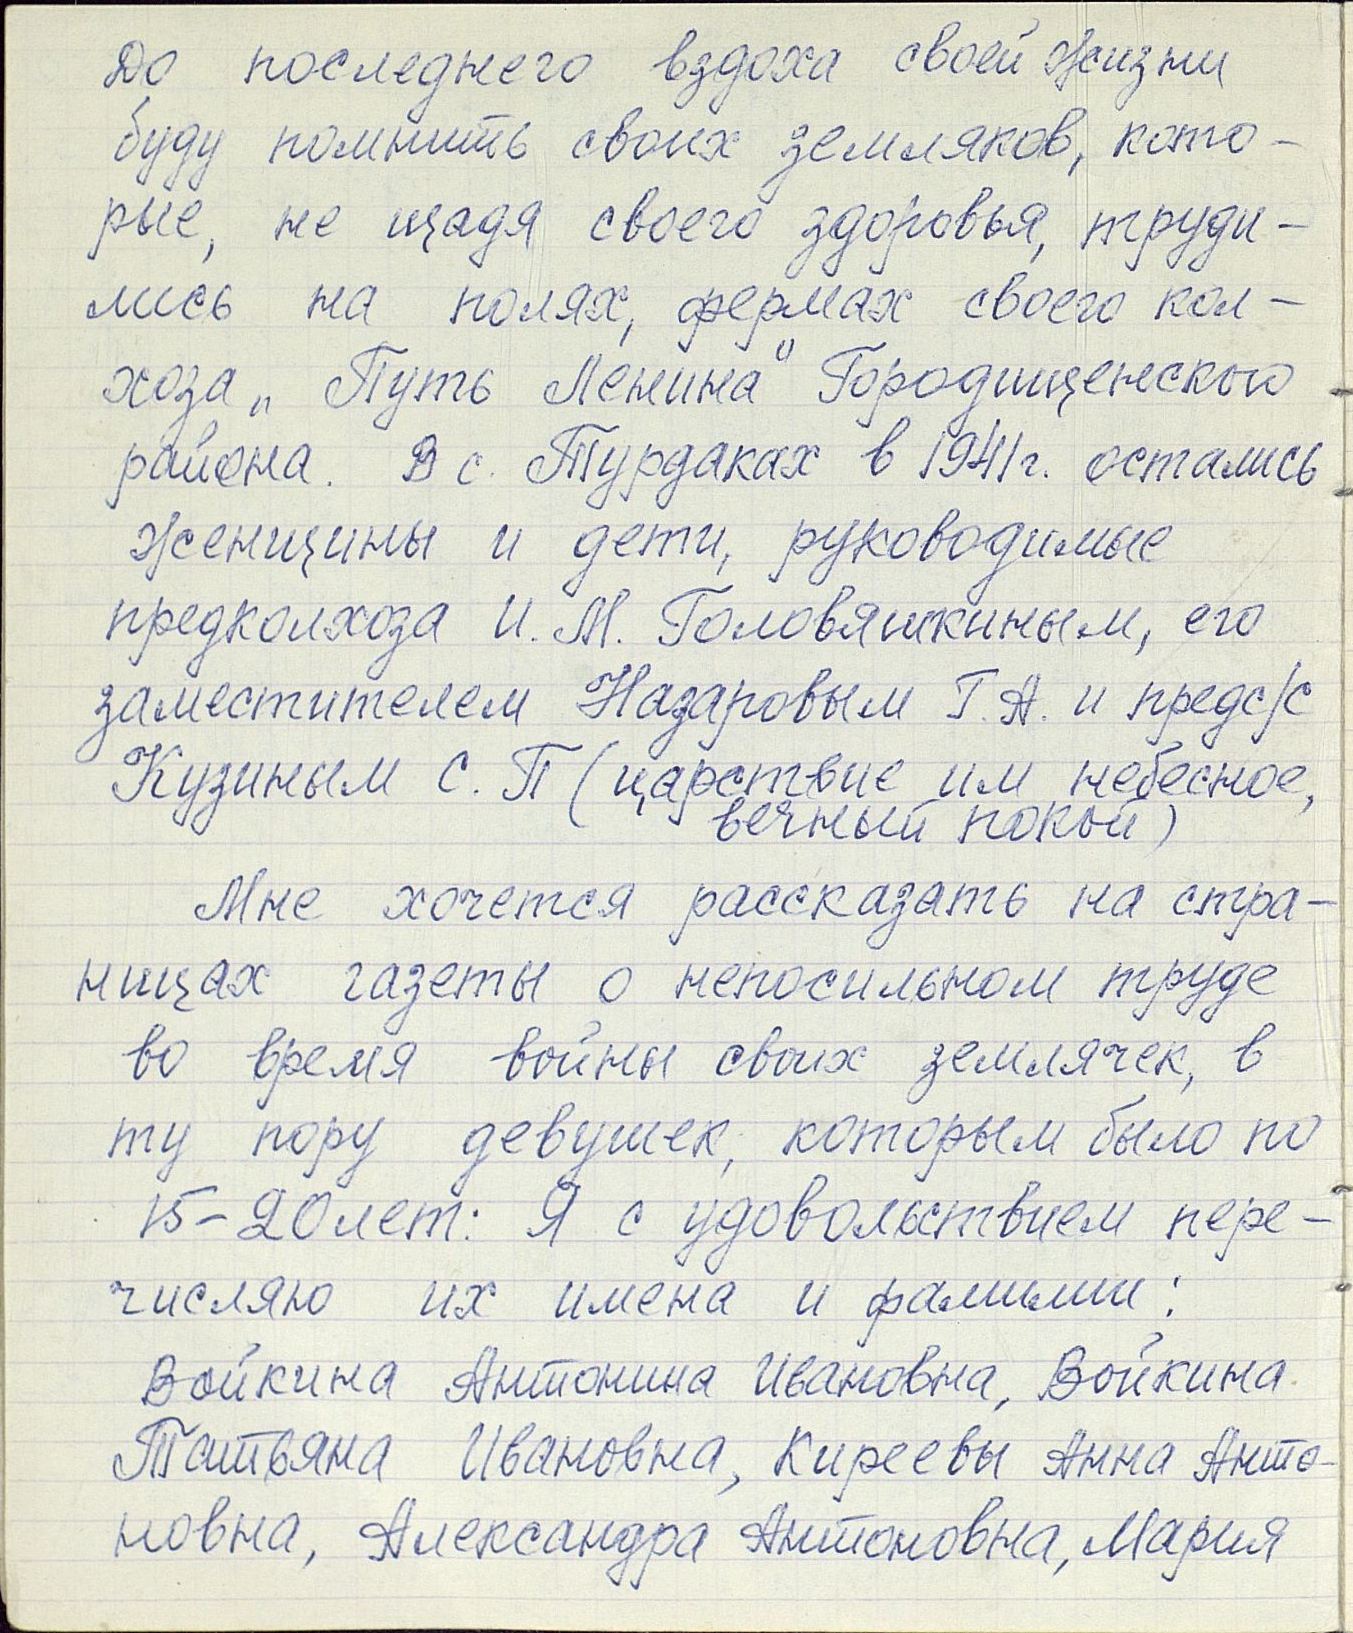 До последнего вздоха своей жизни
буду помнить своих земляков, кото-
рые, не щадя своего здоровья, труди-
лись на полях, фермах своего кол-
хоза „Путь Ленина" Городищенского
района. В с. Турдаках в 1941 г. остались
женщины и дети, руководимые
предколхоза И. М. Головяшкиным, его
заместителем Назаровым Г. А. и предс/с
Кузиным С. П (царствие им небесное,
вечный покой)
Мне хочется рассказать на стра-
ницах газеты о непосильном труде
во время войны своих землячек, в
ту пору девушек, которым было по
15-20 лет: Я с удовольствием пере-
числяю их имена и фамилии:
Войкина Антонина Ивановна, Войкина
Татьяна Ивановна, Киреевы Анна Анто-
новна, Александра Антоновна, Мария